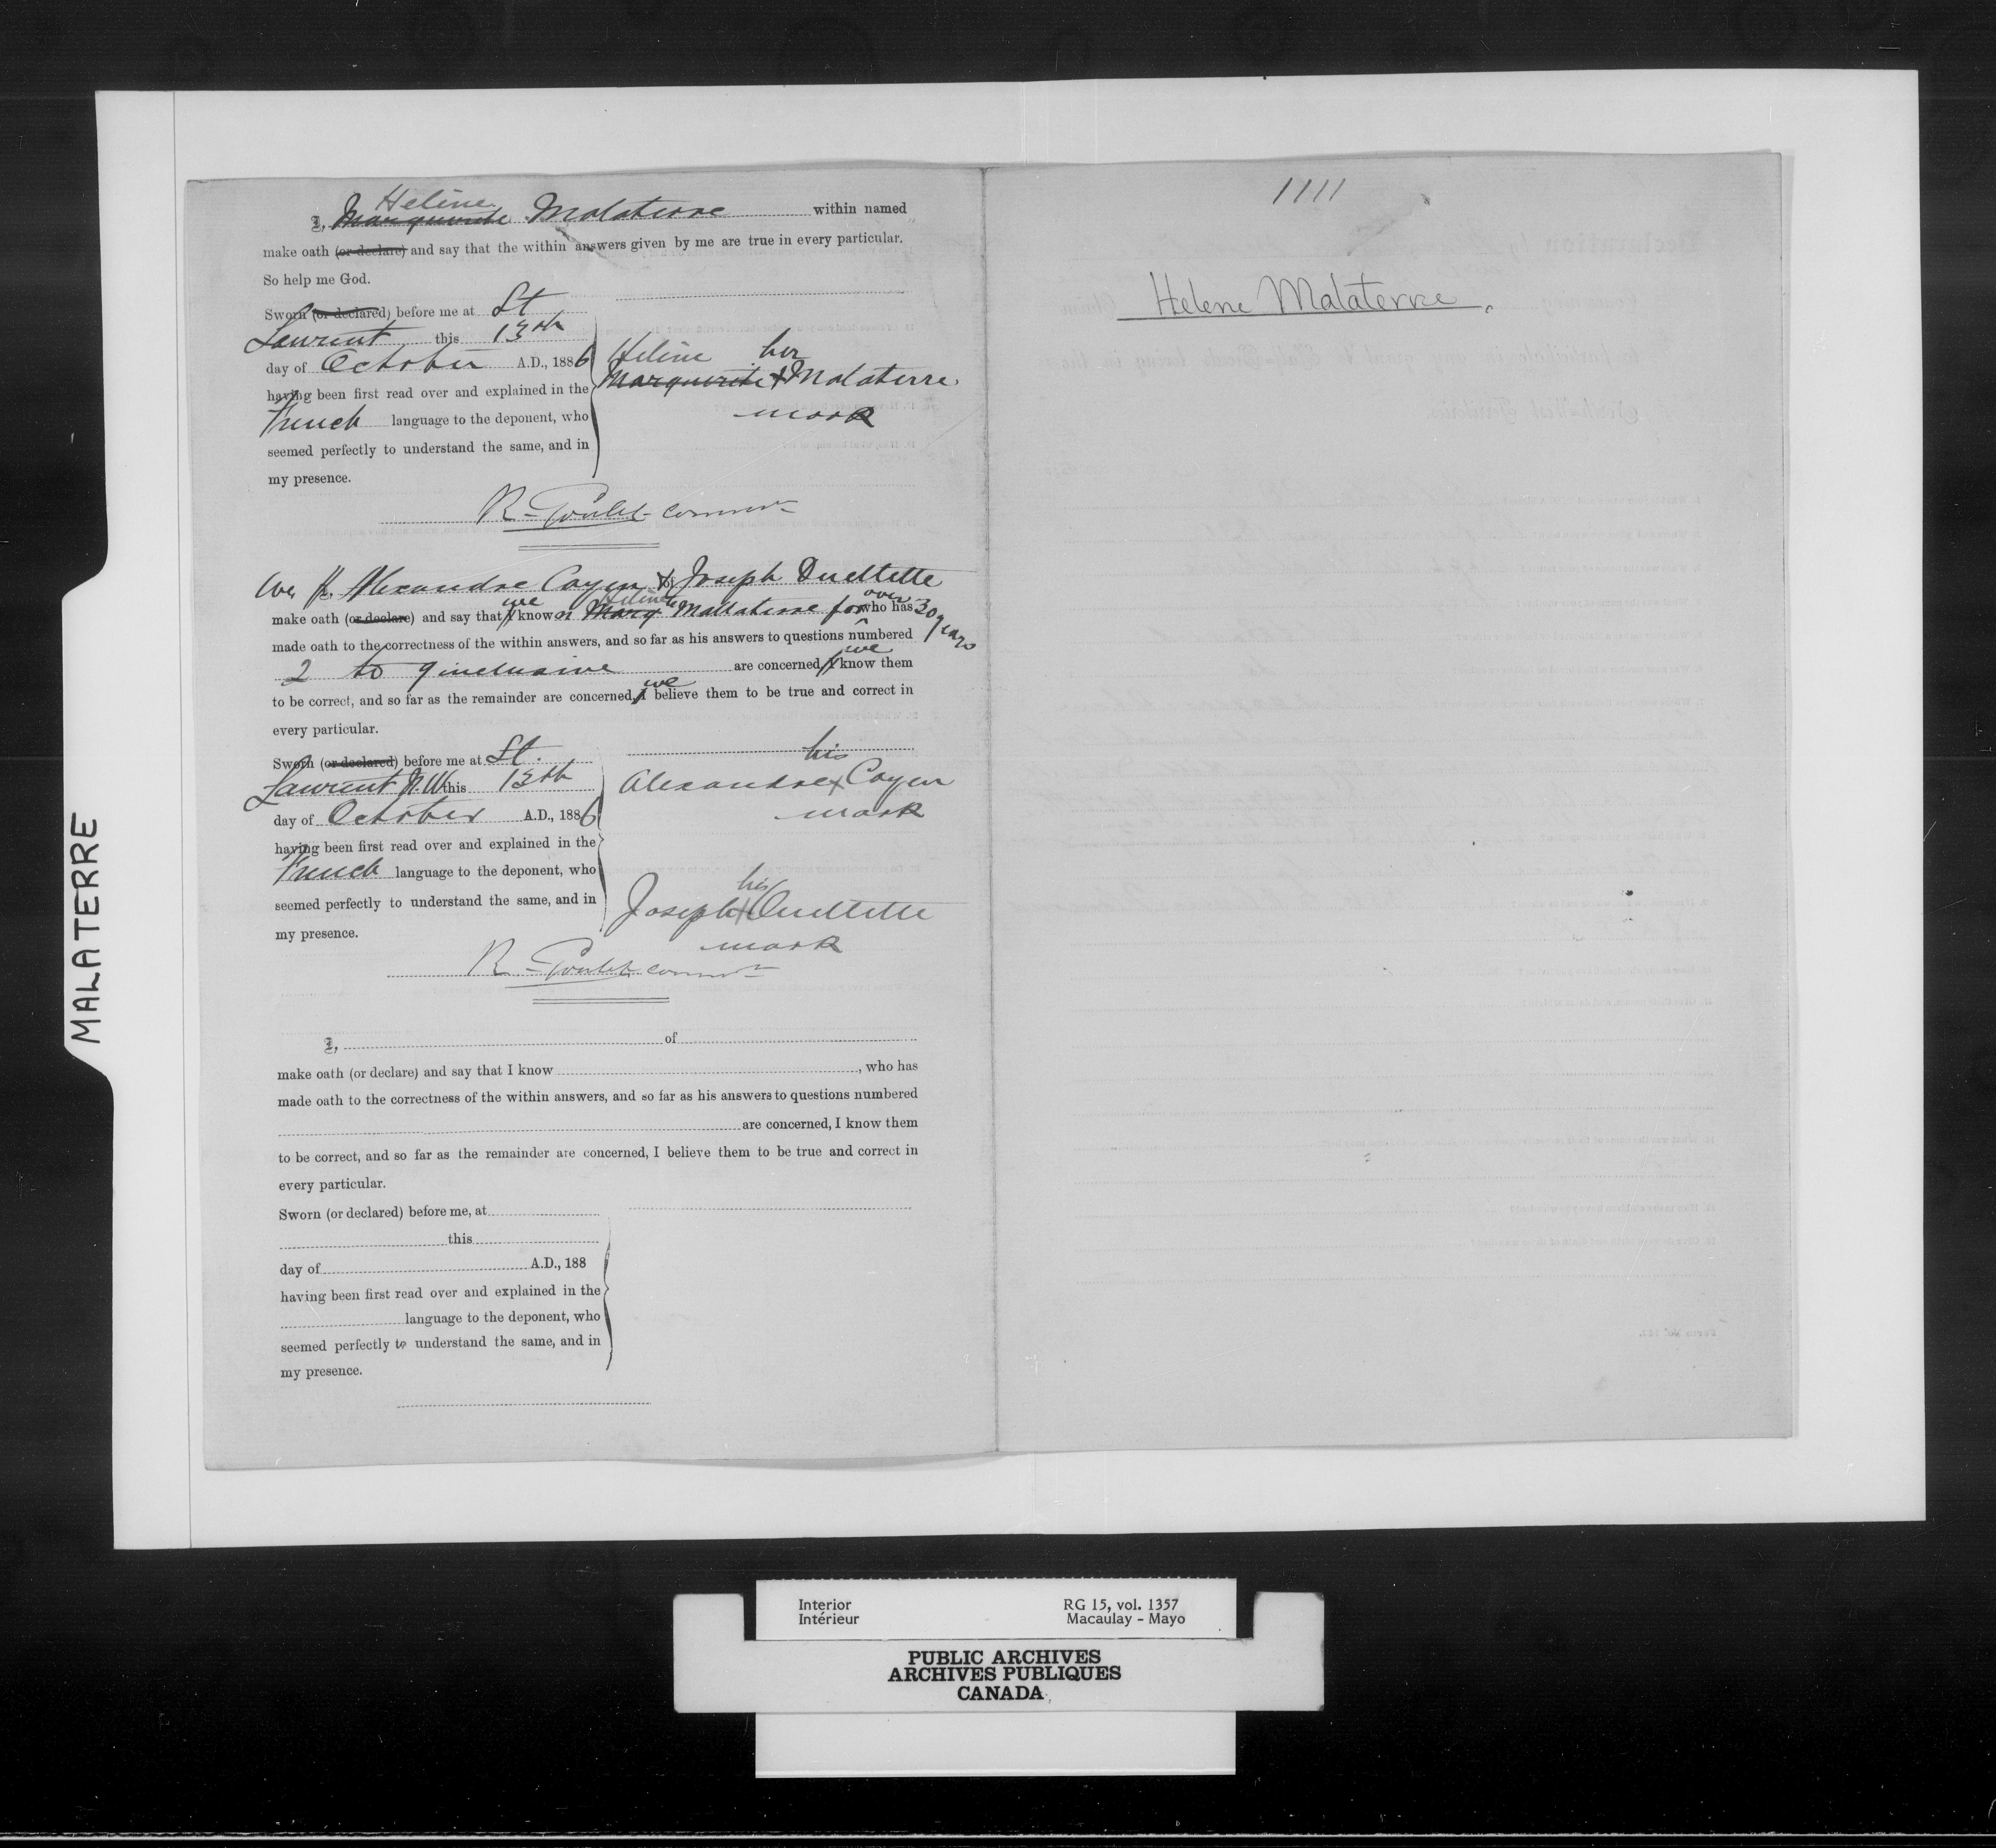 I, Marguerite Helène Malaterre within named
make oath (or declare) and say that the within answers given by me are true in every particular.
So help me God.
Sworn (or declared) before me at St
Laurent this 13th
day of October A.D., 1886
having been first read over and explained in the
French language to the deponent, who
seemed perfectly to understand the same, and in
my presence.
Helène her
Marguerite + Malaterre
mark
R. Goulet commr
We Alexandre Cayen & Joseph Ouellette
make oath (or declare) and say that I we know Marg Helène Mallaterre for over who has 30 years
made oath to the correctness of the within answers, and so far as his answers to questions numbered
2 to 9 inclusive are concerned, I we know them
to be correct, and so far as the remainder are concerned, I we believe them to be true and correct in
every particular.
Sworn (or declared) before me at St.
Laurent N.W. this 13th
day of October A.D., 1886
having been first read over and explained in the
French language to the deponent, who
seemed perfectly to understand the same, and in
my presence.
his
Alexandre x Cayen
mark
his
Joseph + Ouellette
mark
R. Goulet commr
I, of
make oath (or declare) and say that I know , who has
made oath to the correctness of the within answers, and so far as his answers to questions numbered
are concerned, I know them
to be correct, and so far as the remainder are concerned, I believe them to be true and correct in
every particular.
Sworn (or declared) before me, at
this
day of A.D., 188
having been first read over and explained in the
language to the deponent, who
seemed perfectly to understand the same, and in
my presence.
1111
Helene Malaterre.
MALATERRE
Interior RG 15, vol. 1357
Intérieur Macaulay - Mayo
PUBLIC ARCHIVES
ARCHIVES PUBLIQUES
CANADA